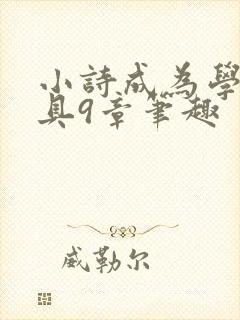 小詩成為學
具9章笔趣
威勒尔